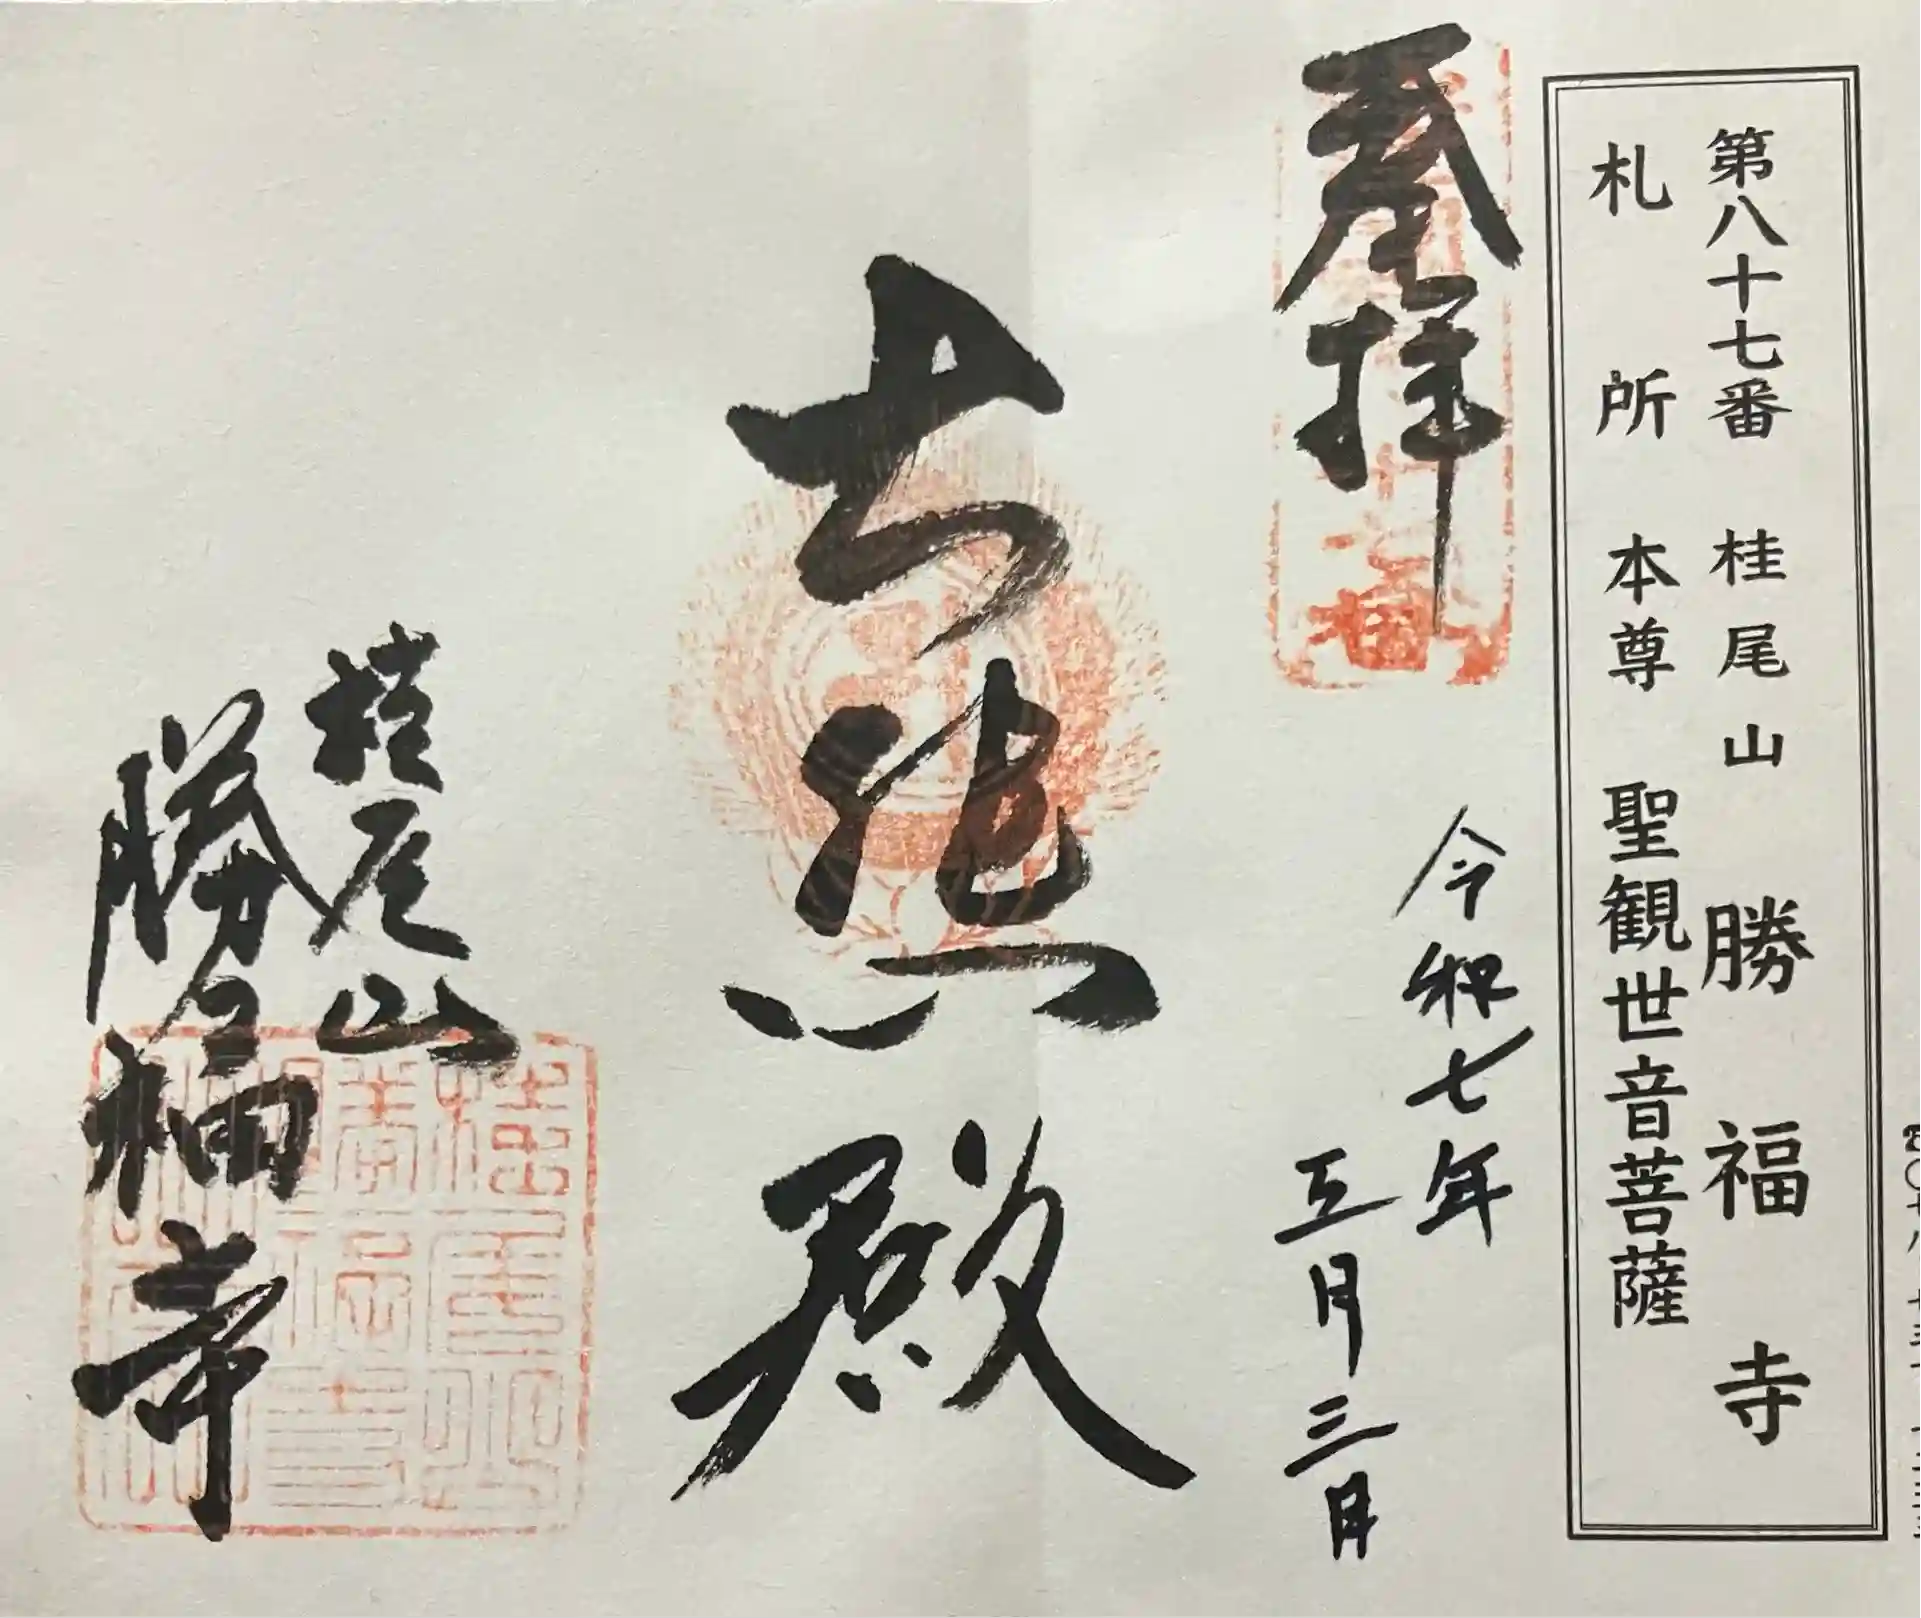 第八十七番 桂尾山 勝福寺
札所 本尊 聖観世音菩薩
奉拝
令和七年
五月三日
大悲殿
桂尾山
勝福寺
桂尾山
勝福寺